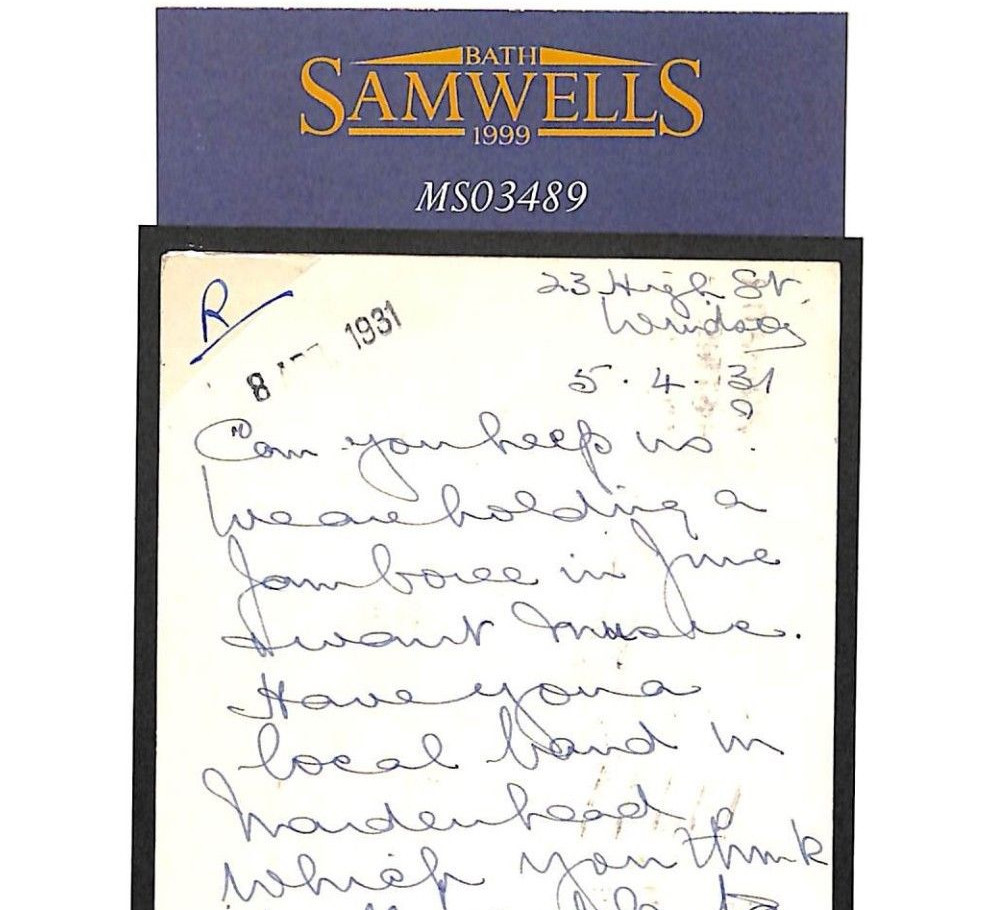 BATH
SAMWELLS
1999
MS03489
R
23 High St,
Windsor
8 1931
5.4.31
Can you help us?
We are holding a
Jamboree in June
& want music.
Have you a
local band in
Maidenhead
which you think